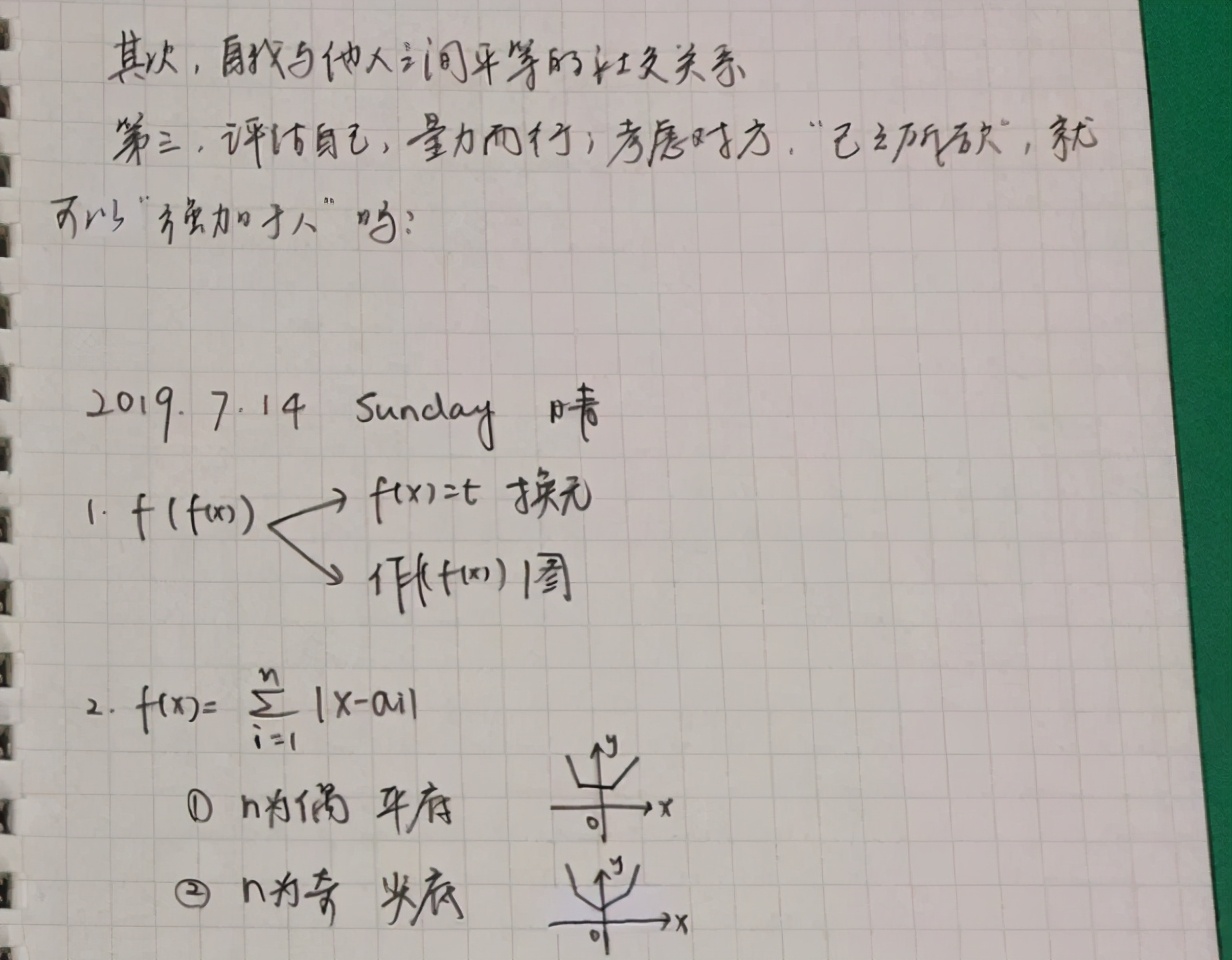 其次，自我与他人之间平等的社交关系
第三，评估自己，量力而行；考虑对方，“己之所欲”，就
可以“强加于人”吗？
2019.7.14 Sunday 晴
1. f(f(x)) → f(x)=t 换元
→ 作f(f(x))图
2. f(x)= \sum_{i=1}^{n} |x-ai|
① n为偶 平底
y
x
0
② n为奇 尖底
y
x
0